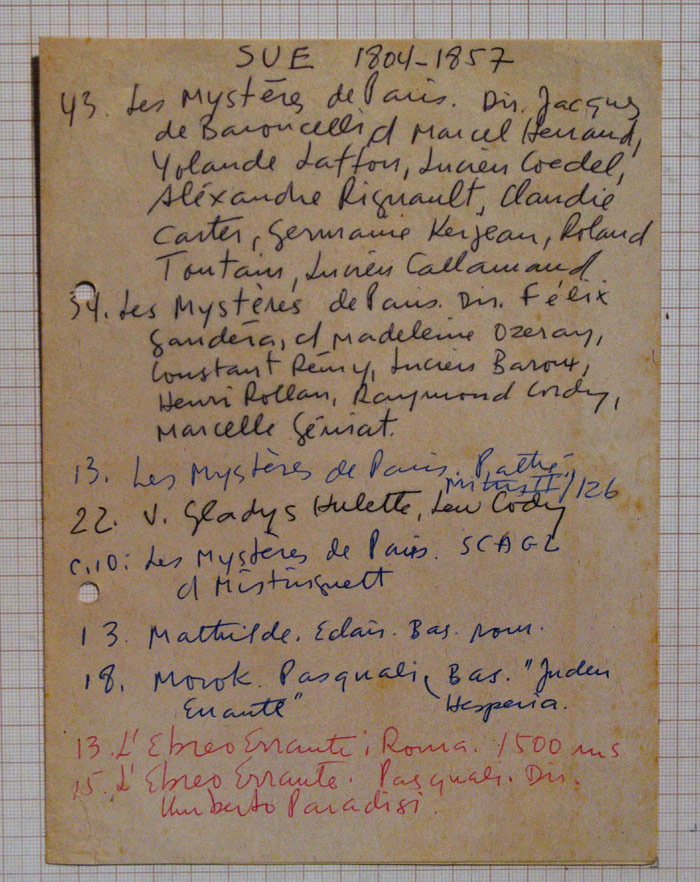 SUE 1804-1857
43. Les Mystères de Paris. Dir. Jacques
de Baroncelli, d Marcel Herrand,
Yolande Laffon, Lucien Coedel,
Aléxandre Rignault, Claudie
Carter, Germaine Kerjean, Roland
Toutain, Lucien Callamand
34. Les Mystères de Paris. Dir. Félix
Gandéra, d Madeleine Ozeray,
Constant Rémy, Lucien Baroux,
Henri Rollan, Raymond Cordy,
Marcelle Géniat.
13. Les Mystères de Paris. Pathé.
Mitry II/126
22. V. Gladys Hulette, Lew Cody
c.10: Les Mystères de Paris. SCAGL
d Mistinguett
13. Mathilde. Eclair. Bas. nom.
18. Morok. Pasquali, Bas. "Juden
Errante" Hesperia.
13. L'Ebreo Errante; Roma. 1500 ms
15. L'Ebreo Errante. Pasquali. Dir.
Umberto Paradisi.